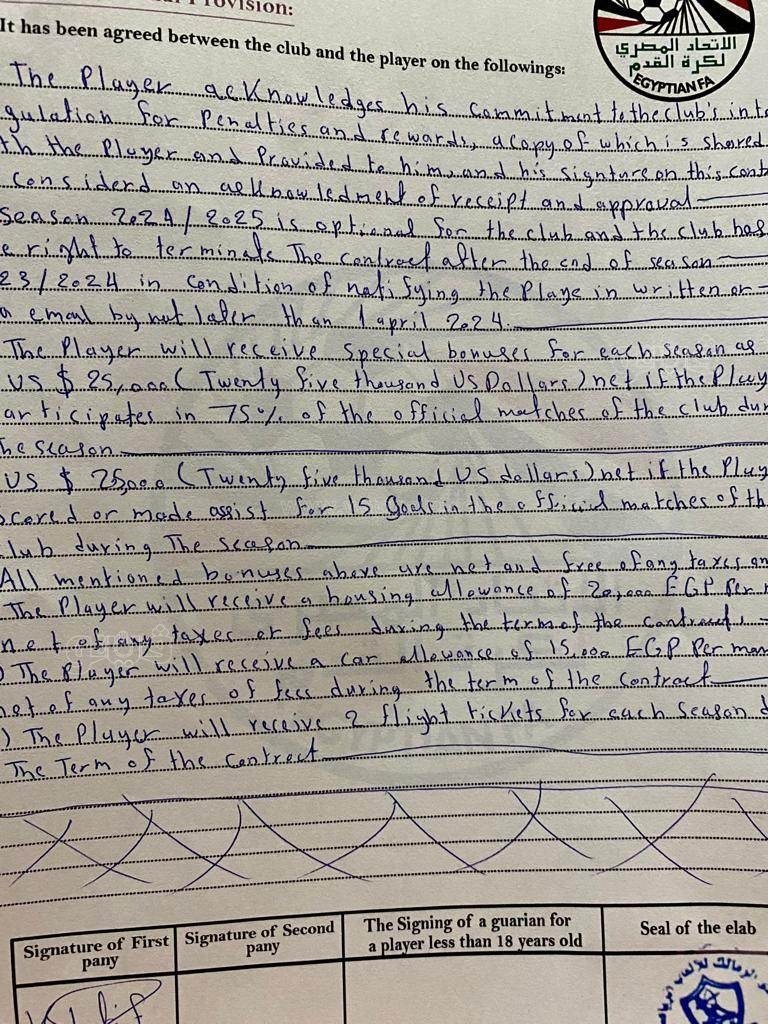 Provision:
It has been agreed between the club and the player on the followings:
الاتحاد المصري
لكرة القدم
EGYPTIAN FA
The Player acknowledges his commitment to the club's inte
gulation for Penalties and rewards, a copy of which is shared
th the Player and Provided to him, and his signture on this cont
considerd an acknowledment of receipt and approval
Season 2024/2025 is optional for the club and the club has
e right to terminate The contract after the end of season
23/2024 in condition of notifying the Playe in written or
a email by not later than 1 april 2024.
The Player will receive special bonuses for each season as
US $ 25,000 (Twenty five thousand US Dollars) net if the Play
articipates in 75% of the official matches of the club dur
he season
US $ 25,000 (Twenty five thousand US dollars) net if the Play
scored or made assist for 15 Goals in the official matches of th
lub during The season
All mentioned bonuses above are net and free of any taxes an
The Player will receive a housing allowance of 20,000 EGP Per m
net of any taxes or fees during the term of the contract
) The Player will receive a car allowance of 15,000 EGP Per mon
net of any taxes of fees during the term of the contract
) The Player will receive 2 flight tickets for each season d
The Term of the contract
Signature of First pany
Signature of Second pany
The Signing of a guarian for
a player less than 18 years old
Seal of the elab